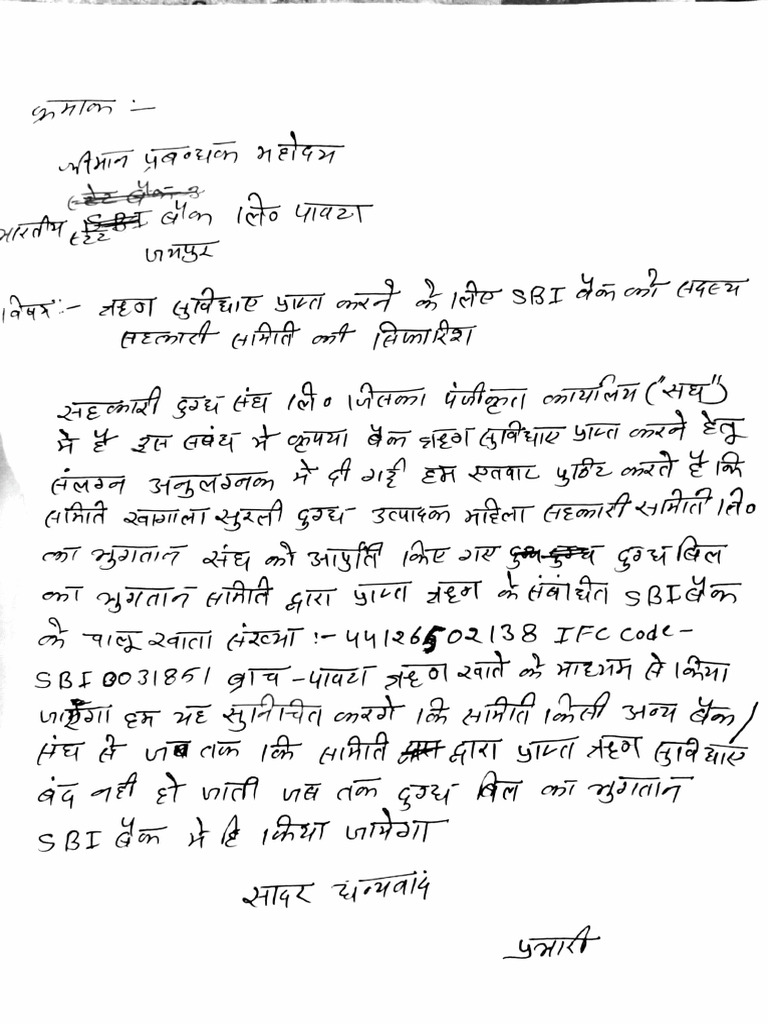 क्रमांक :-
श्रीमान प्रबन्धक महोदय
भारतीय स्टेट बैंक लि० पावटा
जयपुर
विषय :- ऋण सुविधाए प्राप्त करने के लिए SBI बैंक को सदस्य
सहकारी समिति की सिफारिश
सहकारी दुग्ध संघ लि० जिसका पंजीकृत कार्यालय ("संघ")
मे है इस संबंध मे कृपया बैंक ऋण सुविधाए प्राप्त करने हेतू
संलग्न अनुलग्नक मे दी गई हम एतबाट पुष्टि करते है कि
समिति खागाला सुरली दुग्ध उत्पादक महिला सहकारी समिति लि०
का भुगतान संघ को आपुर्ति किए गए दुग्ध बिल
का भुगतान समिति द्वारा प्राप्त ऋण के संबंधित SBI बैंक
के चालू खाता संख्या :- 44126502138 IFC Code-
SBI 0031851 ब्रांच - पावटा ऋण खाते के माध्यम से किया
जाएगा हम यह सुनिचित करगे कि समिति किसी अन्य बैंक/
संघ से जब तक कि समिति द्वारा प्राप्त ऋण सुविधाए
बंद नही हो जाती जब तक दुग्ध बिल का भुगतान
SBI बैंक मे हि किया जायेगा
सादर धन्यवाद
प्रभारी